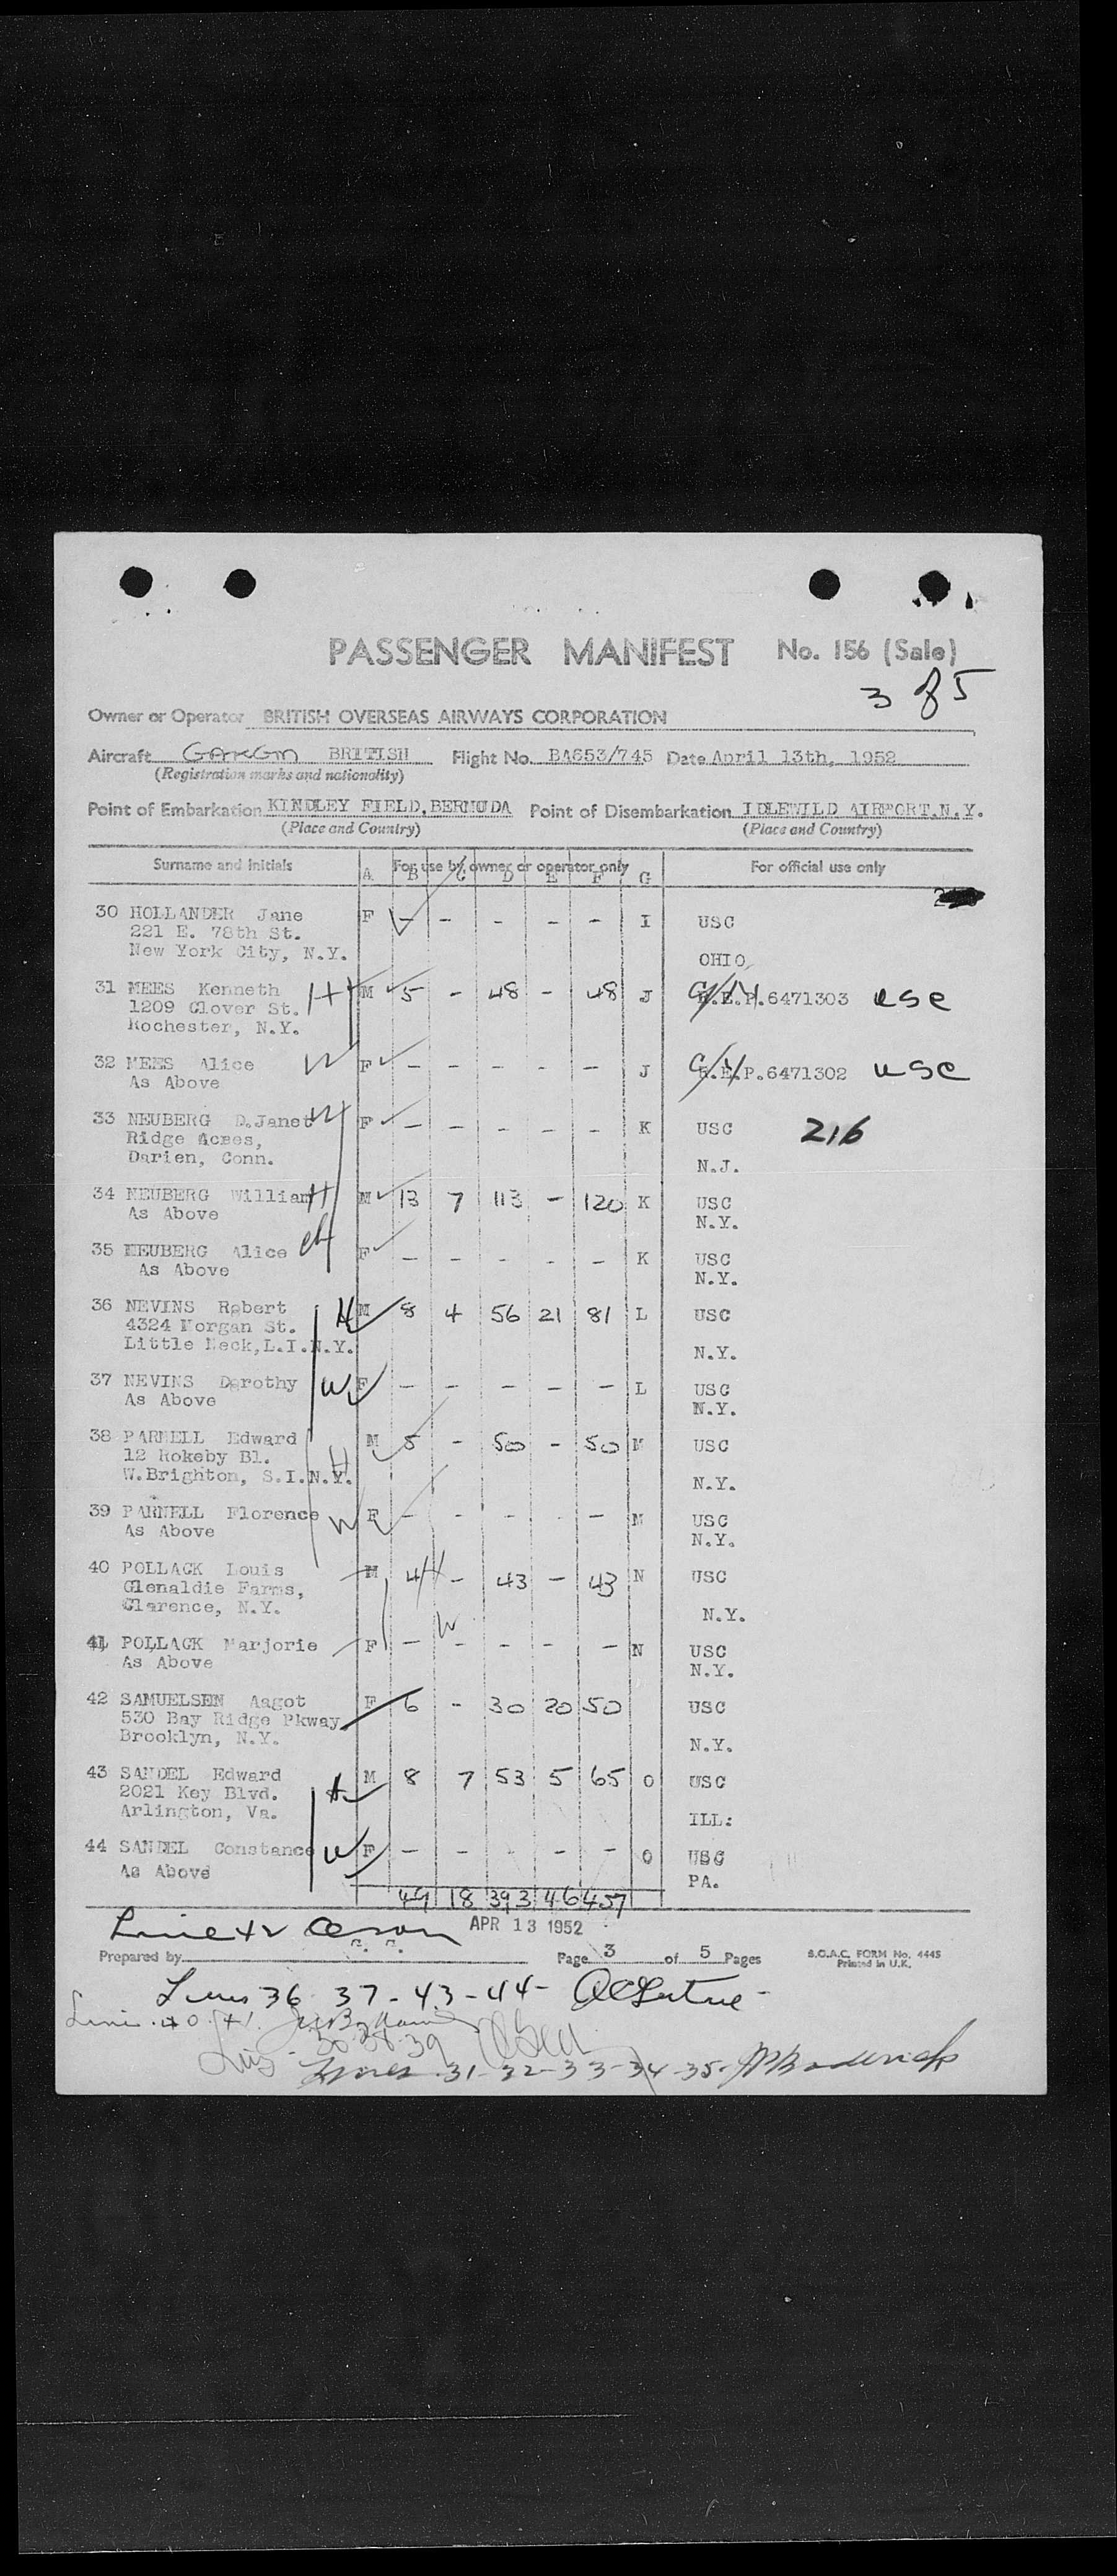 PASSENGER MANIFEST No. 156 (Sale)
3 of 5
Owner or Operator BRITISH OVERSEAS AIRWAYS CORPORATION
Aircraft GAKGM BRITISH Flight No. BA653/745 Date April 13th, 1952
(Registration marks and nationality)
Point of Embarkation KINDLEY FIELD, BERMUDA Point of Disembarkation IDLEWILD AIRPORT.N.Y.
(Place and Country) (Place and Country)
Surname and Initials For use by owner or operator only For official use only
A B C D E F G
30 HOLLANDER Jane F - - - - - I USC
221 E. 78th St.
New York City, N.Y. OHIO
31 MEES Kenneth H M 5 - 48 - 48 J R.E.P.6471303 usc
1209 Clover St.
Rochester, N.Y.
32 MEES Alice W F - - - - - J R.E.P.6471302 usc
As Above
33 NEUBERG D.Janet W F - - - - - K USC 216
Ridge Acres,
Darien, Conn. N.J.
34 NEUBERG William H M 13 7 113 - 120 K USC
As Above N.Y.
35 NEUBERG Alice ch F - - - - - K USC
As Above N.Y.
36 NEVINS Robert H M 8 4 56 21 81 L USC
4324 Morgan St.
Little Neck,L.I.N.Y. N.Y.
37 NEVINS Dorothy W F - - - - - L USC
As Above N.Y.
38 PARNELL Edward H M 5 - 50 - 50 M USC
12 Rokeby Bl.
W.Brighton, S.I.N.Y. N.Y.
39 PARNELL Florence W F - - - - - M USC
As Above N.Y.
40 POLLACK Louis M 4 H - 43 - 43 N USC
Glenaldie Farms,
Clarence, N.Y. N.Y.
41 POLLACK Marjorie F - W - - - - N USC
As Above N.Y.
42 SAMUELSEN Aagot F 6 - 30 20 50 USC
530 Bay Ridge Pkway
Brooklyn, N.Y. N.Y.
43 SANDEL Edward H M 8 7 53 5 65 O USC
2021 Key Blvd.
Arlington, Va. ILL:
44 SANDEL Constance W F - - - - - O USC
As Above PA.
49 18 393 46 457
Line 42
APR 13 1952
Prepared by Page 3 of 5 Pages B.O.A.C. FORM No. 4445
Printed in U.K.
Lines 36 37-43-44-
Line 40 41
30 38 39
Lines 31-32-33-34-35-